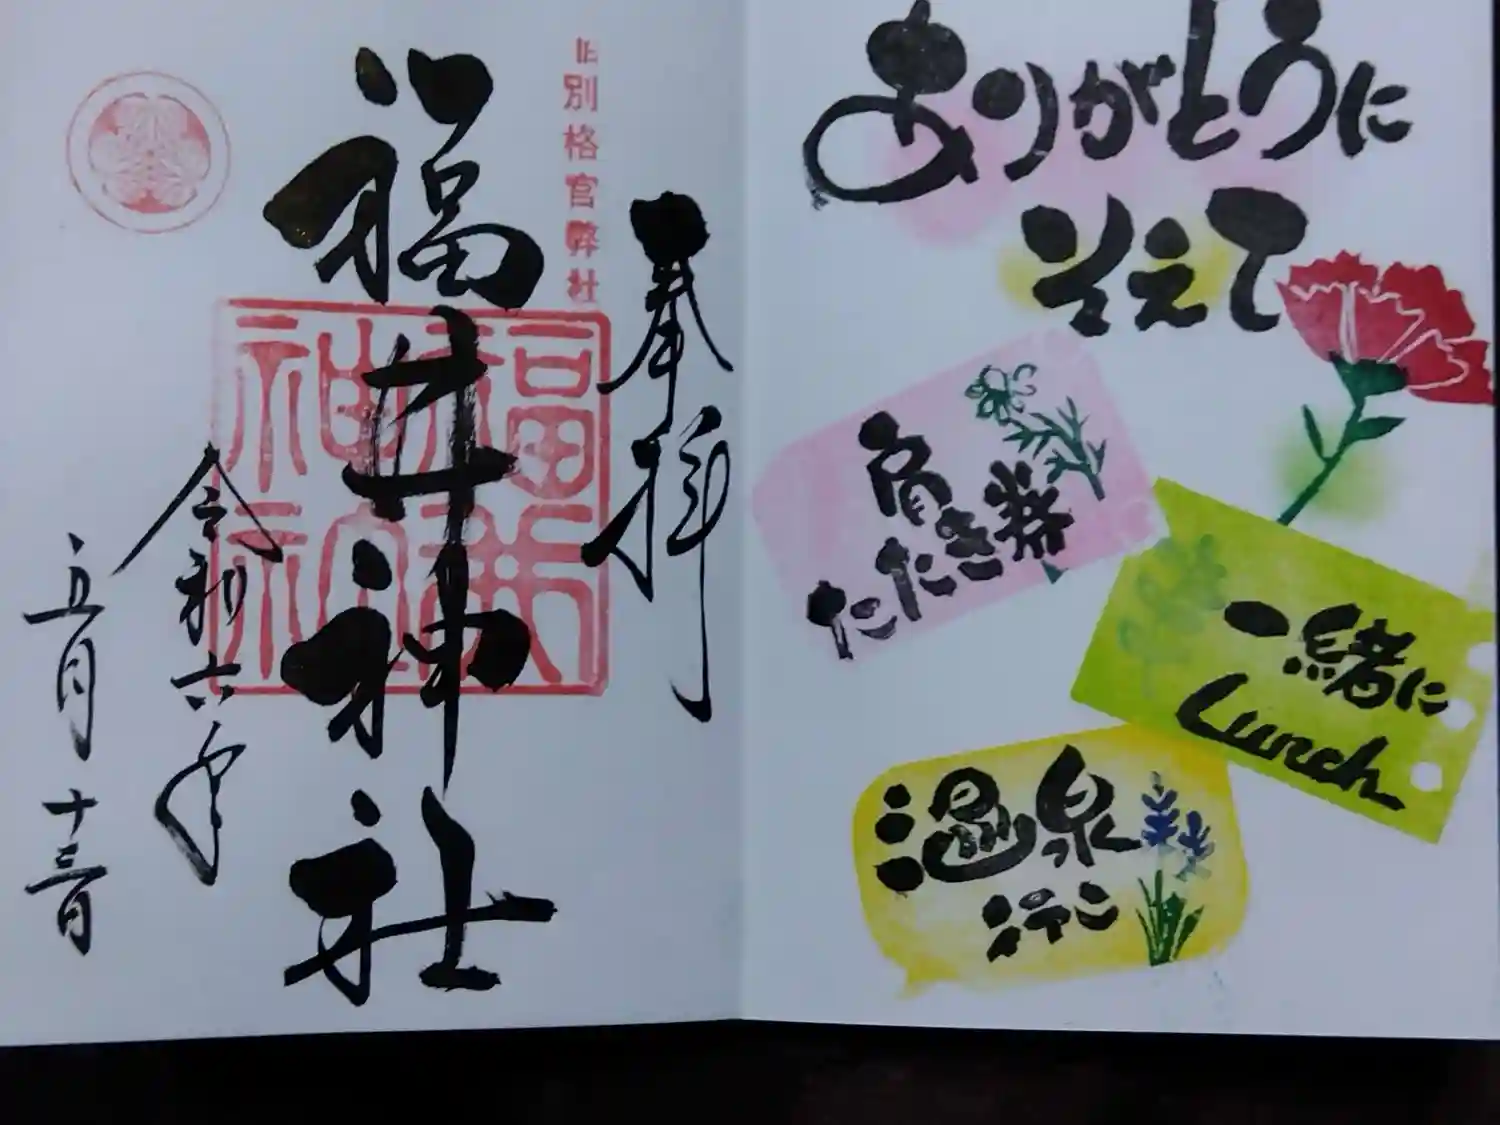 奉拝
旧別格官幣社
福井神社
福井神社
令和六年
五月十三日
ありがとうに
そえて
肩
たたき券
一緒に
Lunch
温泉
行こ